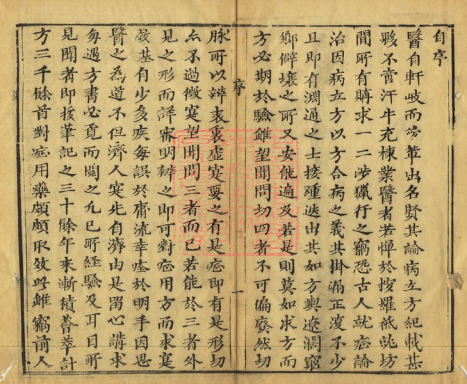 自序
醫自軒岐而下葷出名賢其論病立方紀載甚
夥不啻汗牛充棟業醫者若憚於搜羅祗就坊
間所有購求一二涉獵行之竊恐古人就症論
治因病立方以方合病之義其掛漏正復不少
且即有淵通之士接踵迭出其如方輿遼濶窮
鄉僻壤之所又安能遍及若是則莫如求方而
方必期於驗雖望聞問切四者不可偏廢然切
序
一
脉所以辨表裏虛寔要之有是症即有是形切
亦不過徵寔望聞問三者而已若能於三者外
見之形而詳審明辨之即可對症用方而求寔
效基自少多疾每誤於庸流幸痊於明手因思
醫之為道不但濟人寔先自濟由是留心講求
每遇方書必覓而閱之凢已所經驗及耳目所
見聞者即援筆記之三十餘年來漸積薈萃計
方三千餘首對症用藥頗頗取效每雖竊前人